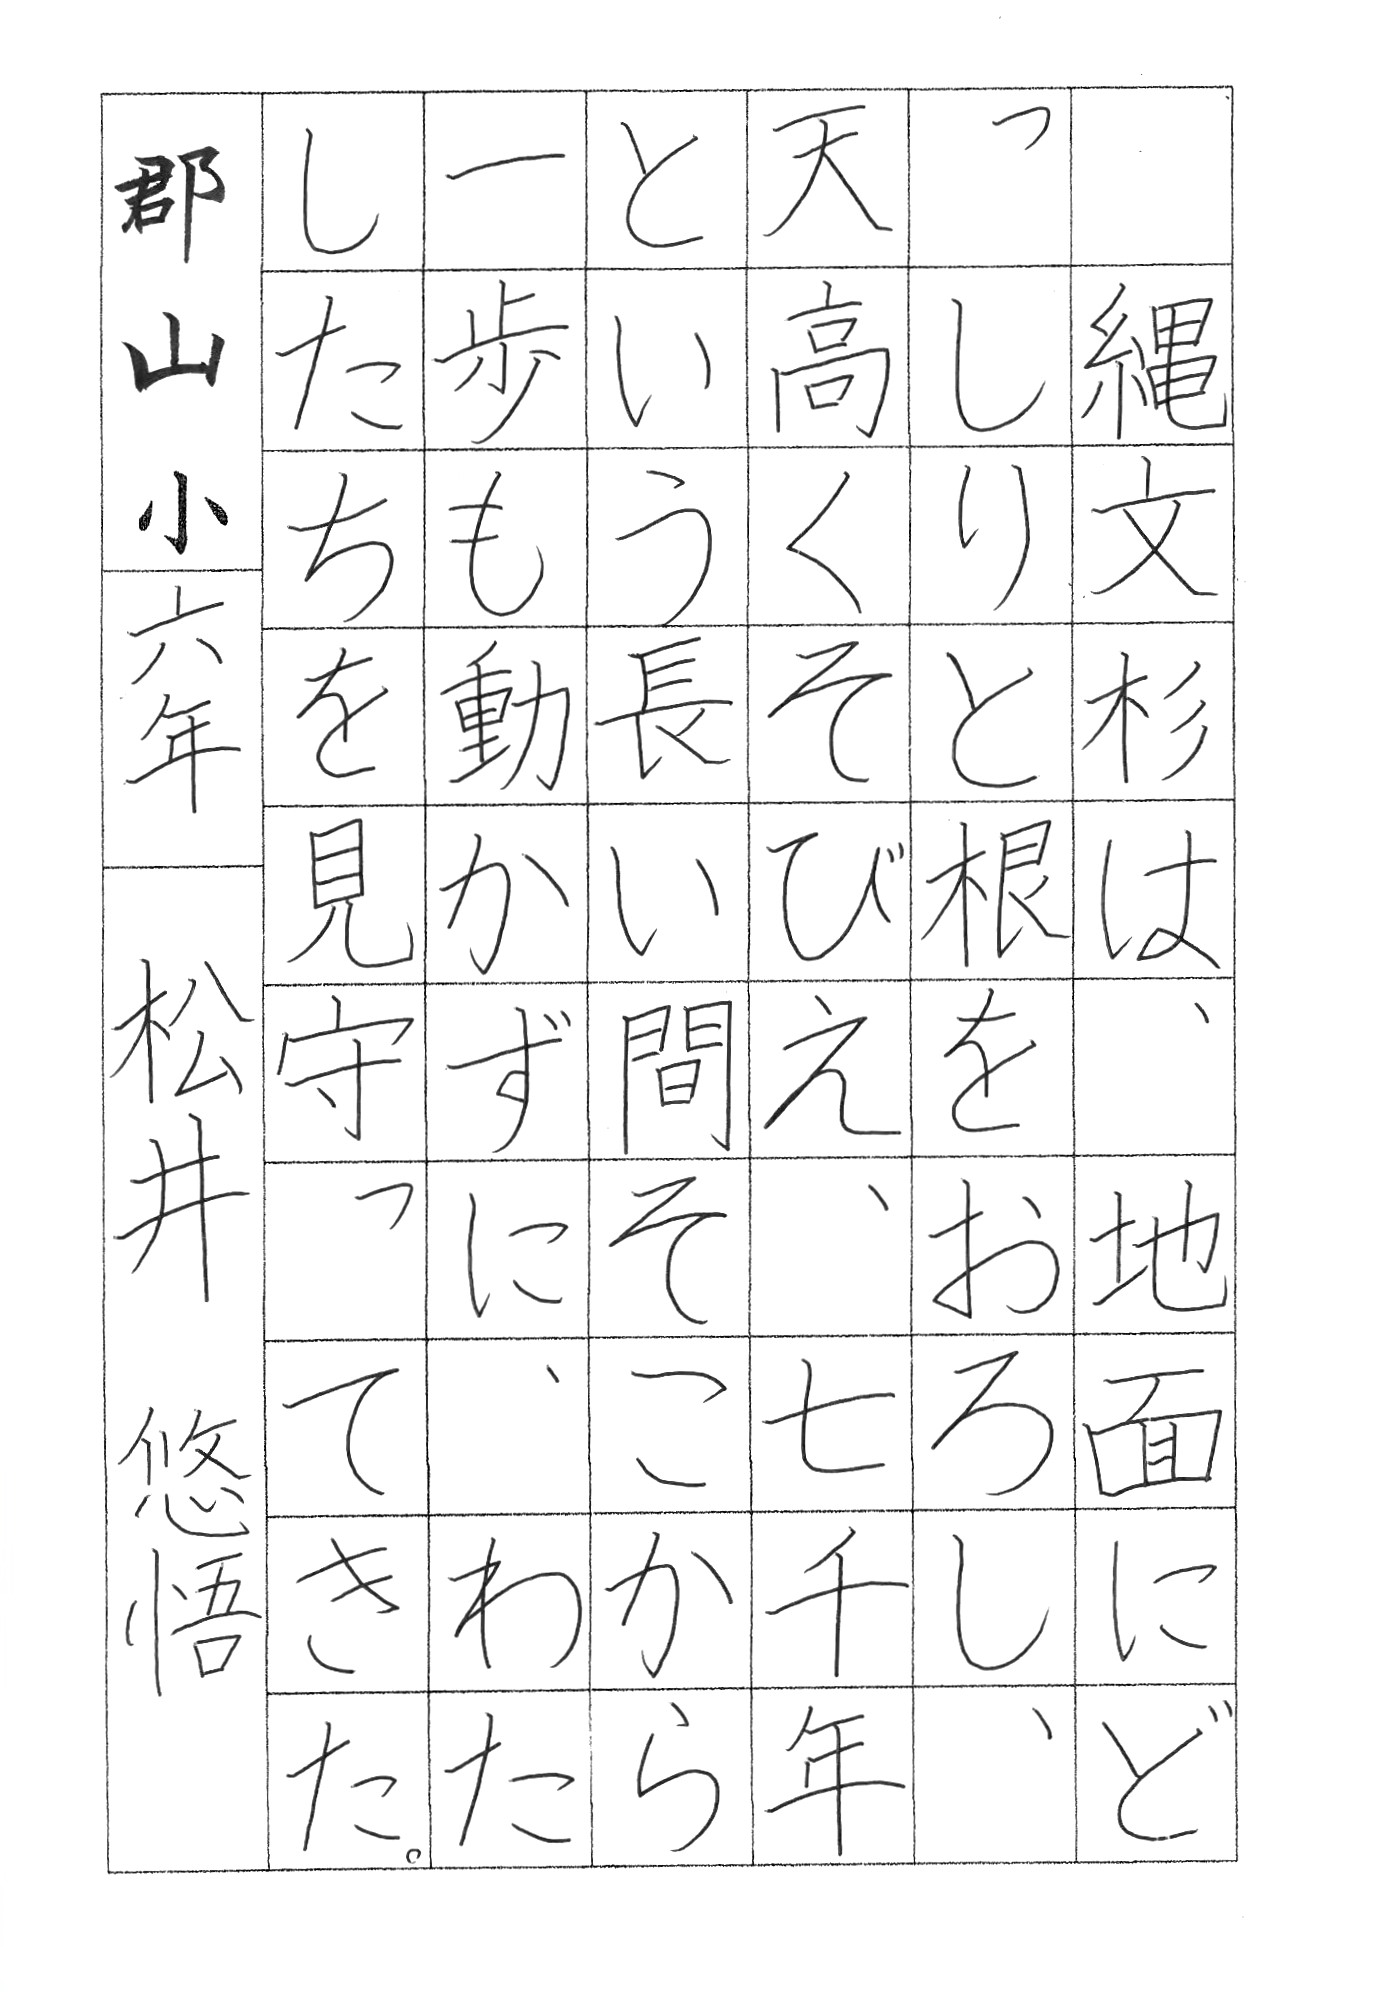 縄文杉は、地面にど
っしりと根をおろし、
天高くそびえ、七千年
という長い間そこから
一歩も動かずに、わた
したちを見守ってきた。
郡山小六年　松井　悠悟